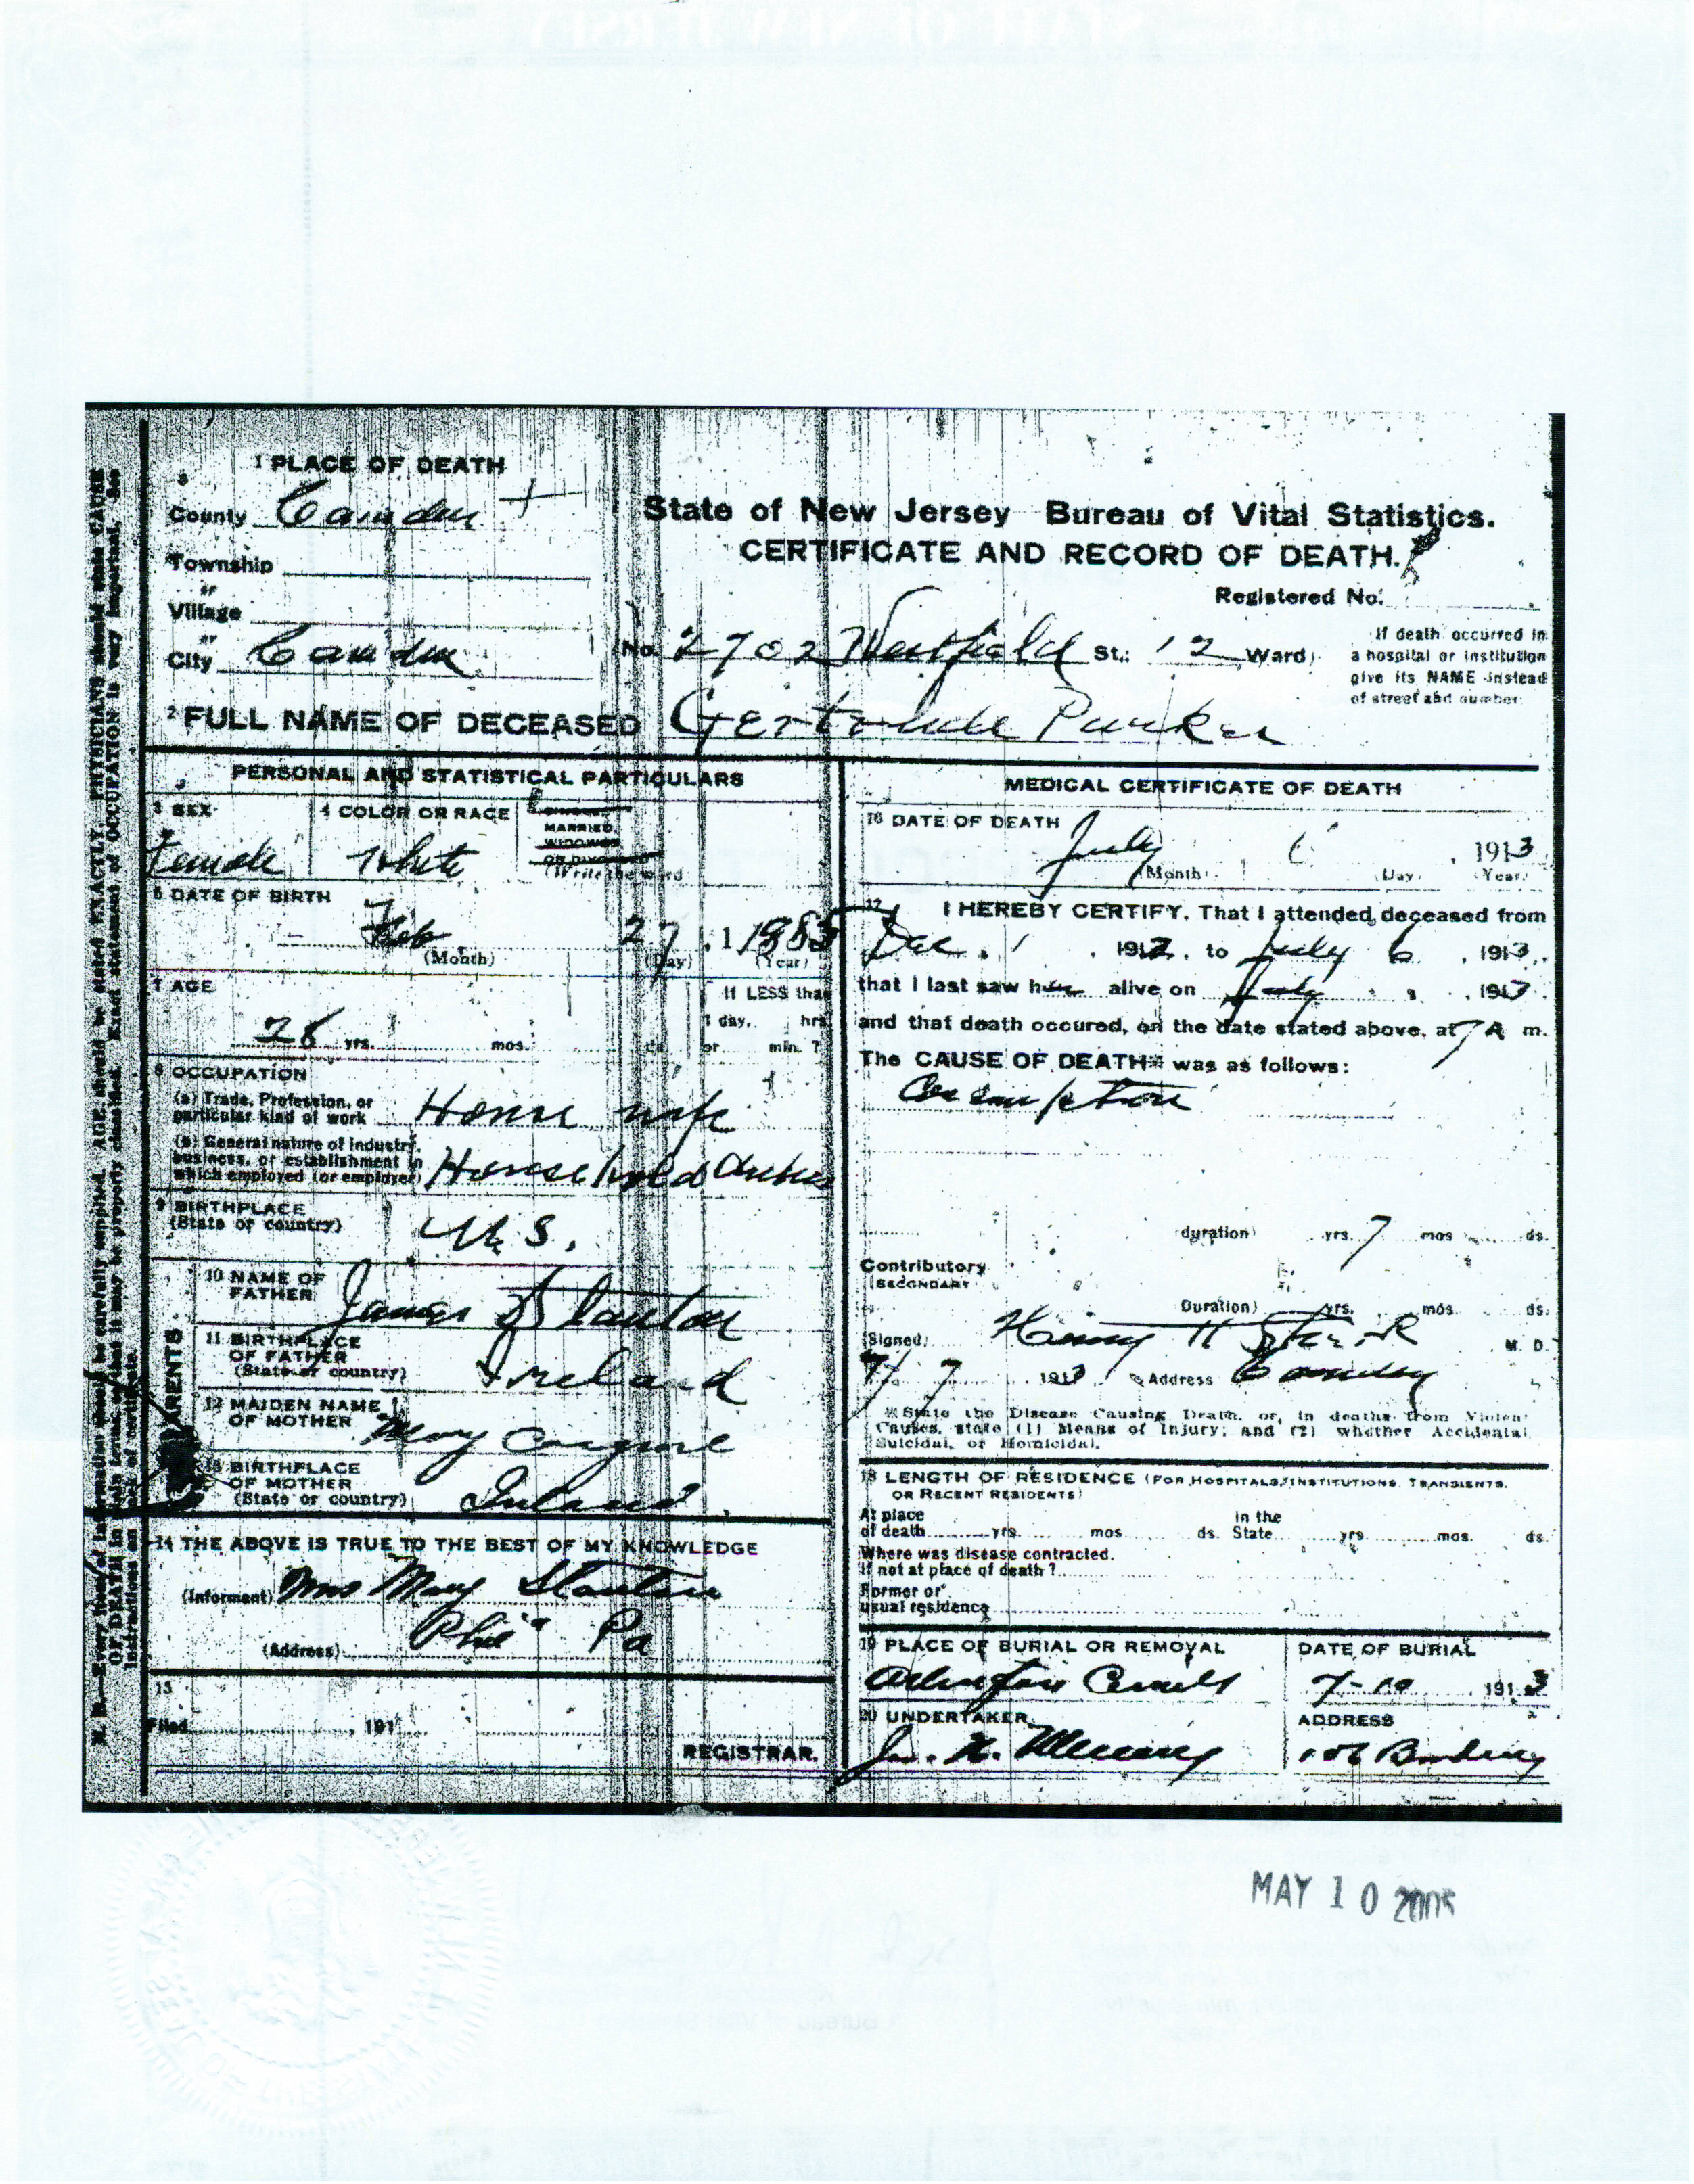 1 PLACE OF DEATH
County Camden
State of New Jersey Bureau of Vital Statistics.
CERTIFICATE AND RECORD OF DEATH.
Township
or
Village
or
City Camden
Registered No.
(No. 2702 Westfield St.: 12 Ward)
If death occurred in
a hospital or institution
give its NAME instead
of street and number.
2 FULL NAME OF DECEASED Gertrude Parker
PERSONAL AND STATISTICAL PARTICULARS
3 SEX
Female
4 COLOR OR RACE
White
MARRIED,
WIDOWED
OR DIVORCED
(Write the word
6 DATE OF BIRTH
Feb 27, 1
(Month) (Day) (Year)
7 AGE
28 yrs. mos. ds.
If LESS than
1 day, hrs.
or min. ?
8 OCCUPATION
(a) Trade, Profession, or
particular kind of work House wife
(b) General nature of Industry,
business, or establishment in
which employed (or employer) Household duties
9 BIRTHPLACE
(State or country) U.S.
PARENTS
10 NAME OF
FATHER James
11 BIRTHPLACE
OF FATHER
(State or country) Ireland
12 MAIDEN NAME
OF MOTHER Mary
13 BIRTHPLACE
OF MOTHER
(State or country) Ireland
14 THE ABOVE IS TRUE TO THE BEST OF MY KNOWLEDGE
(Informant) Mrs Mary
(Address) Phila Pa
15
Filed , 191
REGISTRAR.
MEDICAL CERTIFICATE OF DEATH
16 DATE OF DEATH
July 6, 1913
(Month) (Day) (Year)
17 I HEREBY CERTIFY, That I attended deceased from
Dec. 1, 1912, to July 6, 1913,
that I last saw her alive on July , 1913.
and that death occured, on the date stated above, at 7 A m.
The CAUSE OF DEATH* was as follows:
Consumption
(duration) yrs. 7 mos ds.
Contributory
(SECONDARY
(Duration) yrs. mos. ds.
(Signed) Henry H M. D.
7/7 1913 Address Camden
* State the Disease Causing Death, or, in deaths from Violent
Causes, state (1) Means of Injury; and (2) whether Accidental,
Suicidal, or Homicidal.
18 LENGTH OF RESIDENCE (FOR HOSPITALS, INSTITUTIONS, TRANSIENTS,
OR RECENT RESIDENTS)
At place
of death yrs. mos. ds.
In the
State yrs. mos. ds.
Where was disease contracted,
If not at place of death ?
Former or
usual residence
19 PLACE OF BURIAL OR REMOVAL
Arlington
DATE OF BURIAL
7-10 1913
20 UNDERTAKER
ADDRESS
N. B.—Every item of information should be carefully supplied. AGE should be stated EXACTLY. PHYSICIANS should state CAUSE
OF DEATH in plain terms, so that it may be properly classified. Exact statement of OCCUPATION is very important. See
instructions on back of certificate.
MAY 10 2005